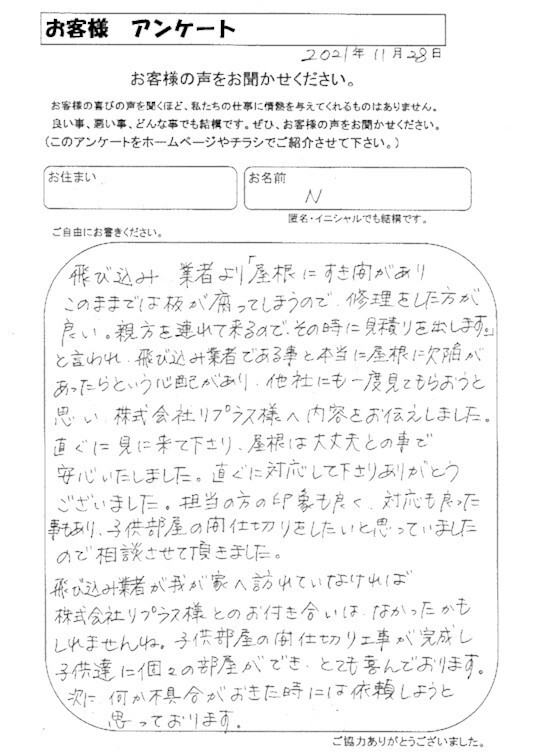 お客様　アンケート
2021年11月28日
お客様の声をお聞かせください。
お客様の喜びの声を聞くほど、私たちの仕事に情熱を与えてくれるものはありません。
良い事、悪い事、どんな事でも結構です。ぜひ、お客様の声をお聞かせください。
(このアンケートをホームページやチラシでご紹介させて下さい。)
お住まい
お名前
N
匿名・イニシャルでも結構です。
ご自由にお書きください。
飛び込み 業者より「屋根にすき間があり
このままでは板が腐ってしまうので、修理をした方が
良い。親方を連れて来るので、その時に見積りを出します。」
と言われ、飛び込み業者である事と本当に屋根に欠陥が
あったらという心配があり、他社にも一度見てもらおうと
思い、株式会社リプラス様へ内容をお伝えしました。
直ぐに見に来て下さり、屋根は大丈夫との事で
安心いたしました。直ぐに対応して下さりありがとう
ございました。担当の方の印象も良く、対応も良った
事もあり、子供部屋の間仕切りをしたいと思っていました
ので相談させて頂きました。
飛び込み業者が我が家へ訪れていなければ
株式会社リプラス様とのお付き合いは、なかったかも
しれませんね。子供部屋の間仕切り工事が完成し
子供達に個々の部屋ができ、とても喜んでおります。
次に 何か不具合がおきた時には依頼しようと
思っております。
ご協力ありがとうございました。